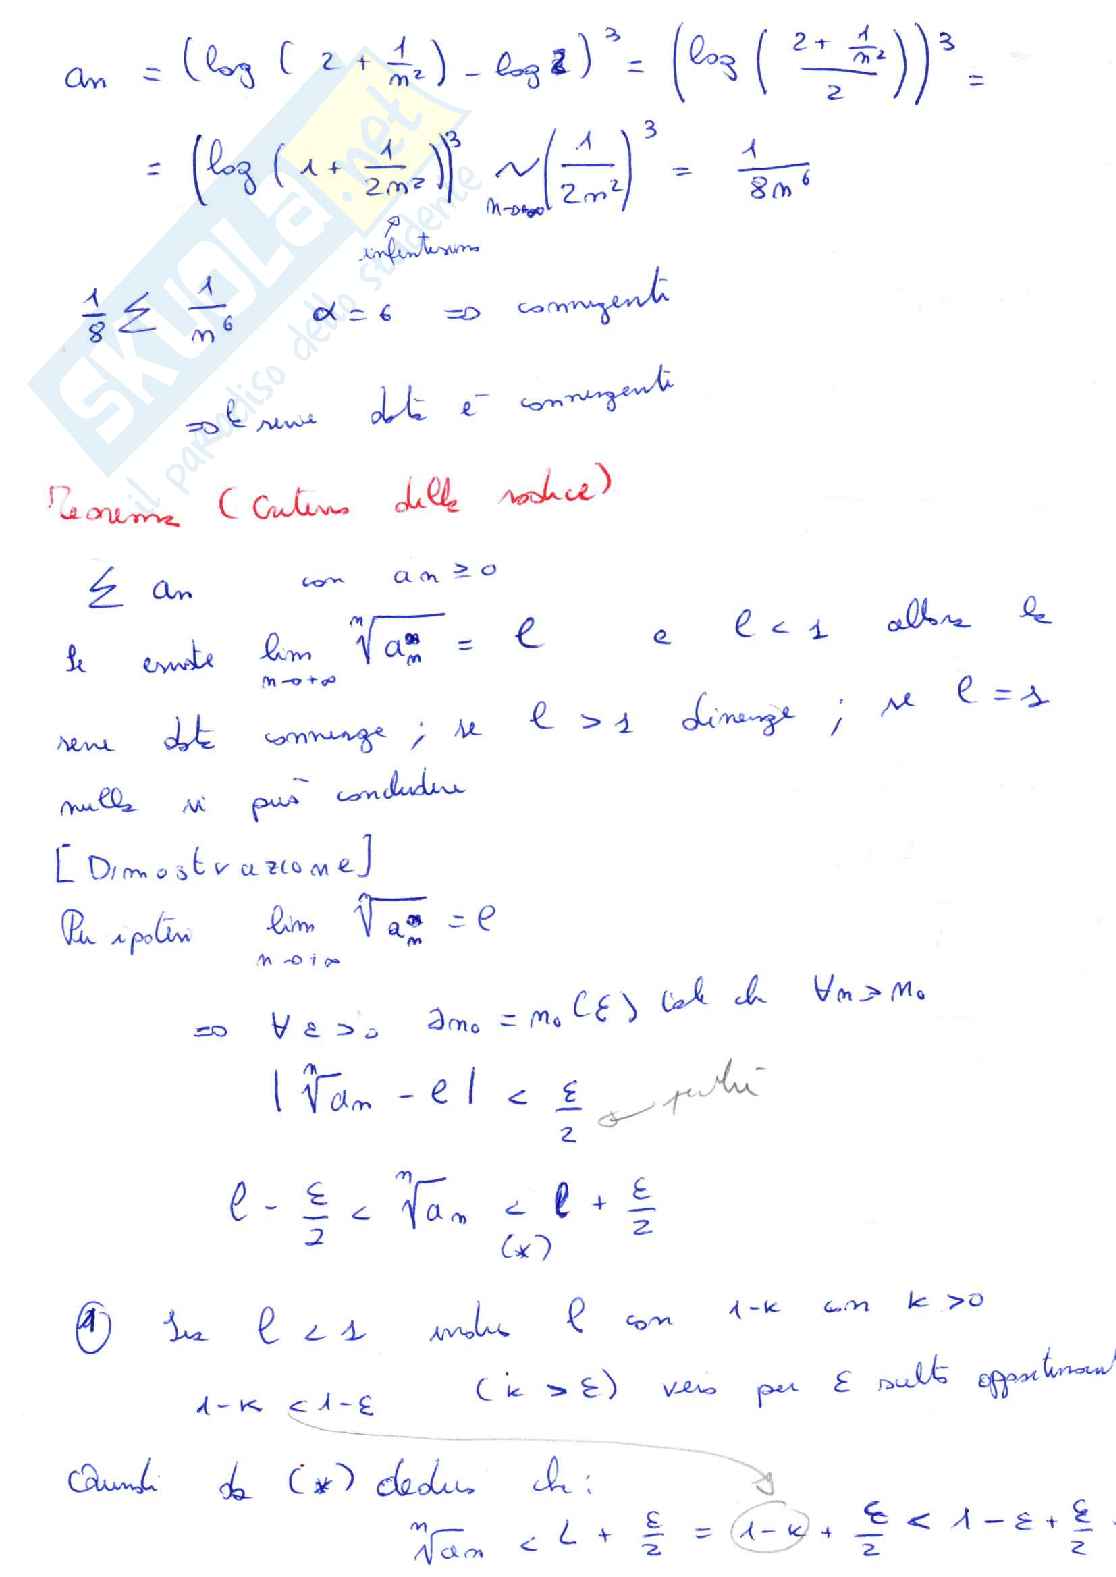 an = (log (2 + 1/n²) - log 2)³ = (log ((2 + 1/n²)/2))³ =
= (log (1 + 1/2n²))³ ~ (1/2n²)³ = 1/8n⁶
n→+∞
infinitesimo
1/8 Σ 1/n⁶ α = 6 ⇒ convergente
⇒ la serie data è convergente
Teorema (Criterio della radice)
Σ an con an ≥ 0
Se esiste lim ⁿ√an = l e l < 1 allora la
n→+∞
serie data converge; se l > 1 diverge; se l = 1
nulla si può concludere
[Dimostrazione]
Per ipotesi lim ⁿ√an = l
n→+∞
⇒ ∀ ε > 0 ∃ n₀ = n₀(ε) tale che ∀n > n₀
|ⁿ√an - l| < ε/2
l - ε/2 < ⁿ√an < l + ε/2
(*)
① Sia l < 1 indico l con 1-k con k > 0
1-k < 1-ε (k > ε) vero per ε scelto
Quindi da (*) deduco che:
ⁿ√an < L + ε/2 = 1-k + ε/2 < 1 - ε + ε/2
SKUOLA.net
il paradiso dello studente